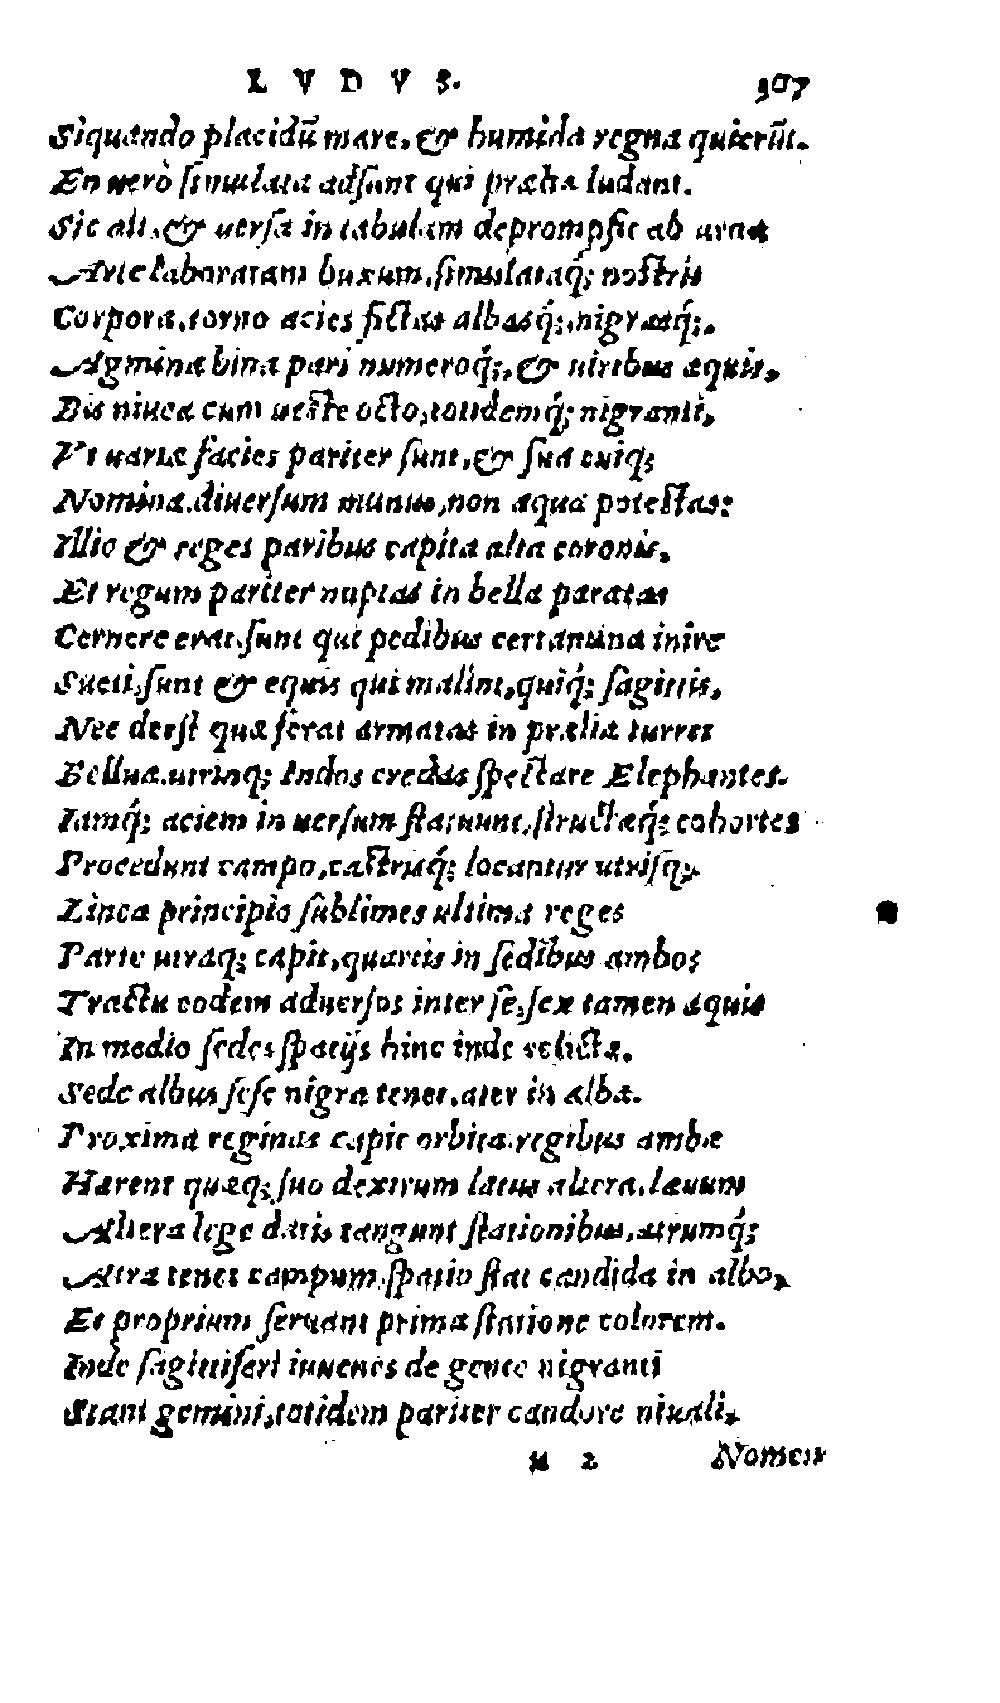 LVDVS. 307
Siquando placidũ mare, & humida regna quierũt.
En uerò simulata adsunt qui prælia ludant.
Sic ait, & uersa in tabulam deprompsit ab urna
Arte laboratam buxum, simulataq́; nostris
Corpora, torno acies fictas albasq́;, nigrasq́;.
Agmina bina pari numeroq́;, & uiribus æquis,
Bis niuea cum ueste octo, totidemq́; nigranti,
Vt uariæ facies pariter sunt, & sua cuiq;
Nomina, diuersum munus, non æqua potestas:
Illic & reges paribus capita alta coronis,
Et regum pariter nuptas in bella paratas
Cernere erat. sunt qui pedibus certamina inire
Sueti, sunt & equis qui malint, quiq́; sagittis,
Nec deest quæ ferat armatas in prælia turres
Bellua. utrinq; Indos credas spectare Elephantes.
Iamq́; aciem in uersum statuunt, structæq́; cohortes
Procedunt campo, castrisq́; locantur utrisq;.
Linea principio sublimes ultima reges
Parte utraq; capit, quartis in sedibus ambos
Tractu eodem aduersos inter se, sex tamen æquis
In medio sedes spatijs hinc inde relictæ.
Sede albus sese nigra tenet, ater in alba.
Proxima reginas capit orbita, regibus ambæ
Hærent quæq; suo dextrum latus altera, læuum
Altera lege datis tangunt stationibus, atrumq́;
Atra tenet campum, spatio stat candida in albo,
Et proprium seruant prima statione colorem.
Inde sagittiferi iuuenes de gente nigranti
Stant gemini, totidem pariter candore niuali,
u 2 Nomen